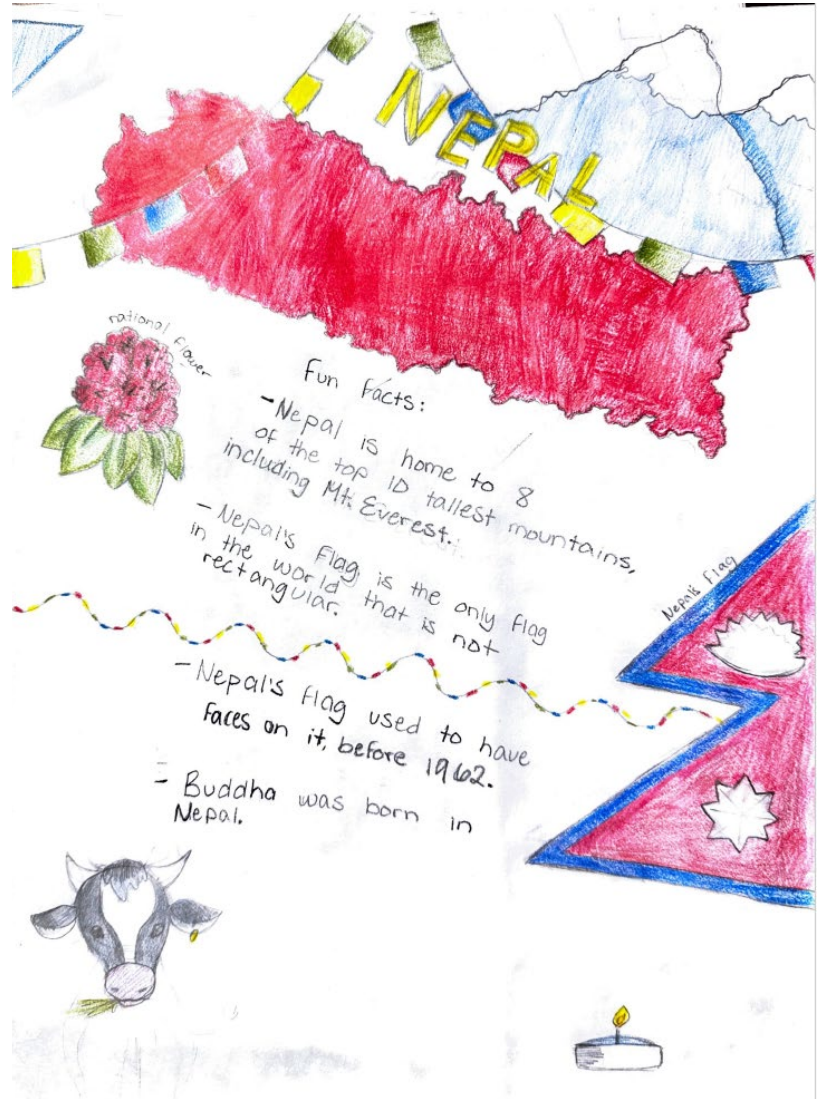 NEPAL
national flower
Fun Facts:
- Nepal is home to 8
of the top 10 tallest mountains,
including Mt. Everest.
- Nepal's Flag is the only flag
in the world that is not
rectangular.
Nepal's Flag
- Nepal's flag used to have
faces on it, before 1962.
- Buddha was born in
Nepal.